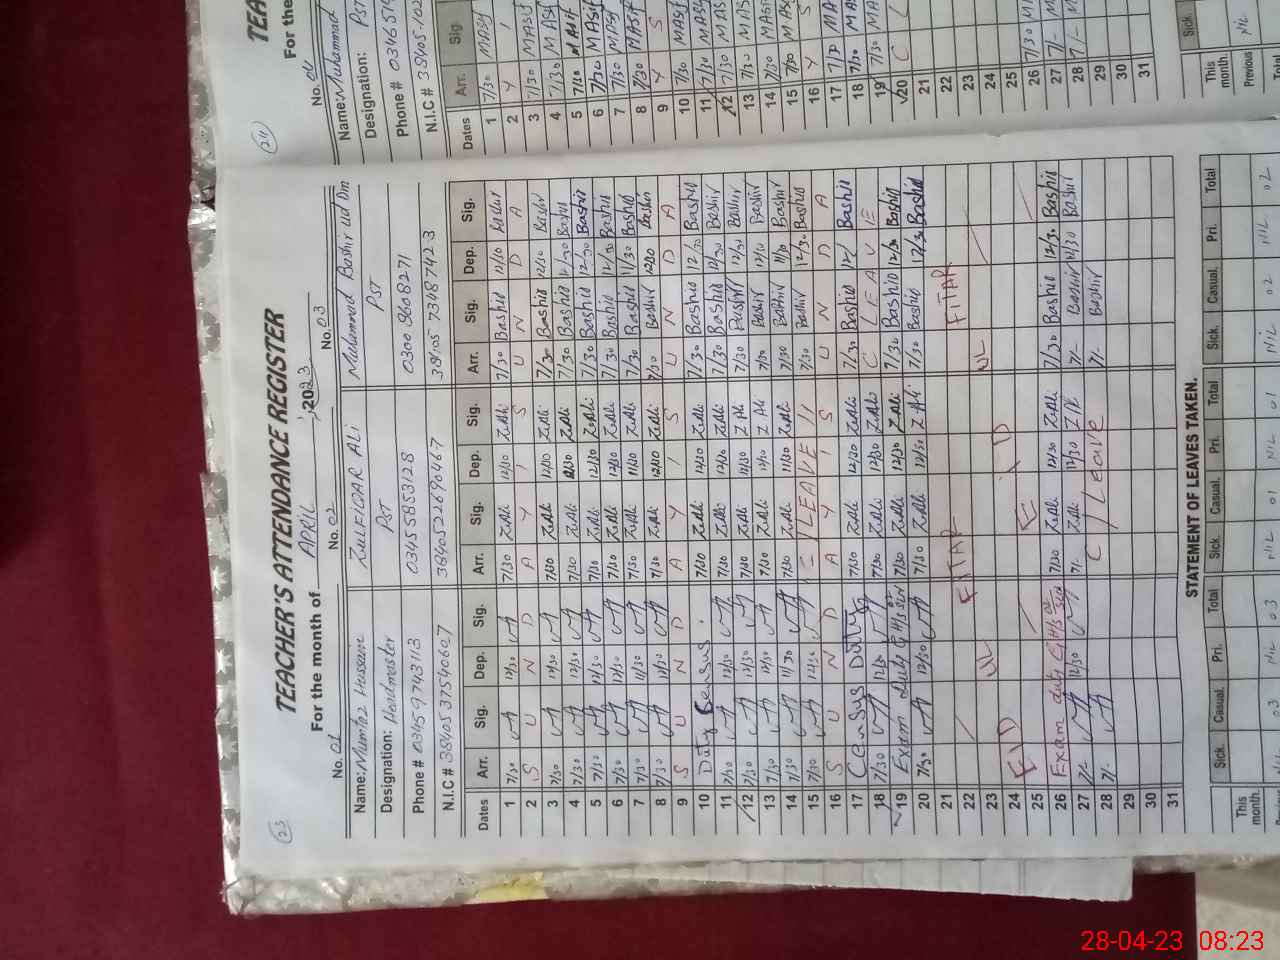 23
TEACHER'S ATTENDANCE REGISTER
For the month of APRIL, 2023
No. 01 No. 02 No. 03
Name: Mumtaz Hussain ZULFIQAR ALI Muhammad Bashir ud Din
Designation: Headmaster PST PST
Phone # 03459743113 03455853128 0300 9608271
N.I.C # 3840537540607 3840522690467 38405 7348742 3
Dates Arr. Sig. Dep. Sig. Arr. Sig. Dep. Sig. Arr. Sig. Dep. Sig.
1 7/30 12/30 7/30 Z.Ali 12/30 Z.Ali 7/30 Bashir 11/10 Bashir
2 S U N D A Y I S U N D A
3 7/30 12/30 7/30 Z.Ali 12/30 Z.Ali 7/30 Bashir 12/30 Bashir
4 7/30 12/30 7/30 Z.Ali 12/30 Z.Ali 7/30 Bashir 12/30 Bashir
5 7/30 12/30 7/30 Z.Ali 12/30 Z.Ali 7/30 Bashir 12/30 Bashir
6 7/30 12/30 7/30 Z.Ali 12/30 Z.Ali 7/30 Bashir 12/30 Bashir
7 7/30 11/30 7/30 Z.Ali 11/30 Z.Ali 7/30 Bashir 11/30 Bashir
8 7/30 12/30 7/30 Z.Ali 12/30 Z.Ali 7/30 Bashir 12/30 Bashir
9 S U N D A Y / S U N D A
10 Duty Census. 7/30 Z.Ali 12/30 Z.Ali 7/30 Bashir 12/30 Bashir
11 7/30 12/30 7/30 Z.Ali 12/30 Z.Ali 7/30 Bashir 12/30 Bashir
12 7/30 12/30 7/30 Z.Ali 12/30 Z Ali 7/30 Bashir 12/30 Bashir
13 7/30 12/30 7/30 Z.Ali 12/30 Z Ali 7/30 Bashir 12/10 Bashir
14 7/30 11/30 7/30 Z.Ali 11/30 Z.Ali 7/30 Bashir 11/30 Bashir
15 7/30 12/30 LEAVE 7/30 Bashir 12/30 Bashir
16 S U N D A Y I S U N D A
17 Census Duty 7/30 Z.Ali 12/30 Z.Ali 7/30 Bashir 12/ Bashir
18 7/30 12/30 7/30 Z.Ali 12/30 Z.Ali C LEAVE
19 Exam duty 7/30 Z.Ali 12/30 Z.Ali 7/30 Bashir 12/30 Bashir
20 7/30 12/30 7/30 Z.Ali 12/30 Z Ali 7/30 Bashir 12/30 Bashir
21
22 FITAR FITAR
23 UL UL
24 EID
25 E D
26 Exam duty 7/30 Z.Ali 12/30 Z.Ali 7/30 Bashir 12/30 Bashir
27 7/- 12/30 7/- Z.Ali 12/30 Z.Ali 7/- Bashir 12/30 Bashir
28 7/- C / Leave 7/- Bashir
29
30
31
STATEMENT OF LEAVES TAKEN.
Sick. Casual. Pri. Total Sick. Casual. Pri. Total Sick. Casual. Pri. Total
This month. 03 NIL 03 NIL 01 NIL 01 Nil 02 NIL 02
24
TEA
For the
No. 04
Name: Muhammad
Designation: PST
Phone # 0346 519
N.I.C # 38405-102
Dates Arr. Sig.
1 7/30 MASif
2 Y
3 7/30 MASif
4 7/30 M ASif
5 7/30 M Asif
6 7/30 MASif
7 7/30 MASif
8 7/30 MASif
9 Y S
10 7/30 MASif
11 7/30 MASif
12 7/30 MAS
13 7/30 MAS
14 7/30 MASi
15 7/30 MAS
16 Y S
17 7/30 MA
18 7/30 MAS
19 7/30 MA
20 C L
21
22
23
24
25
26 7/30 M
27 7/- M
28 7/- M
29
30
31
Sick.
This month. Nil
Previous
Total
28-04-23 08:23